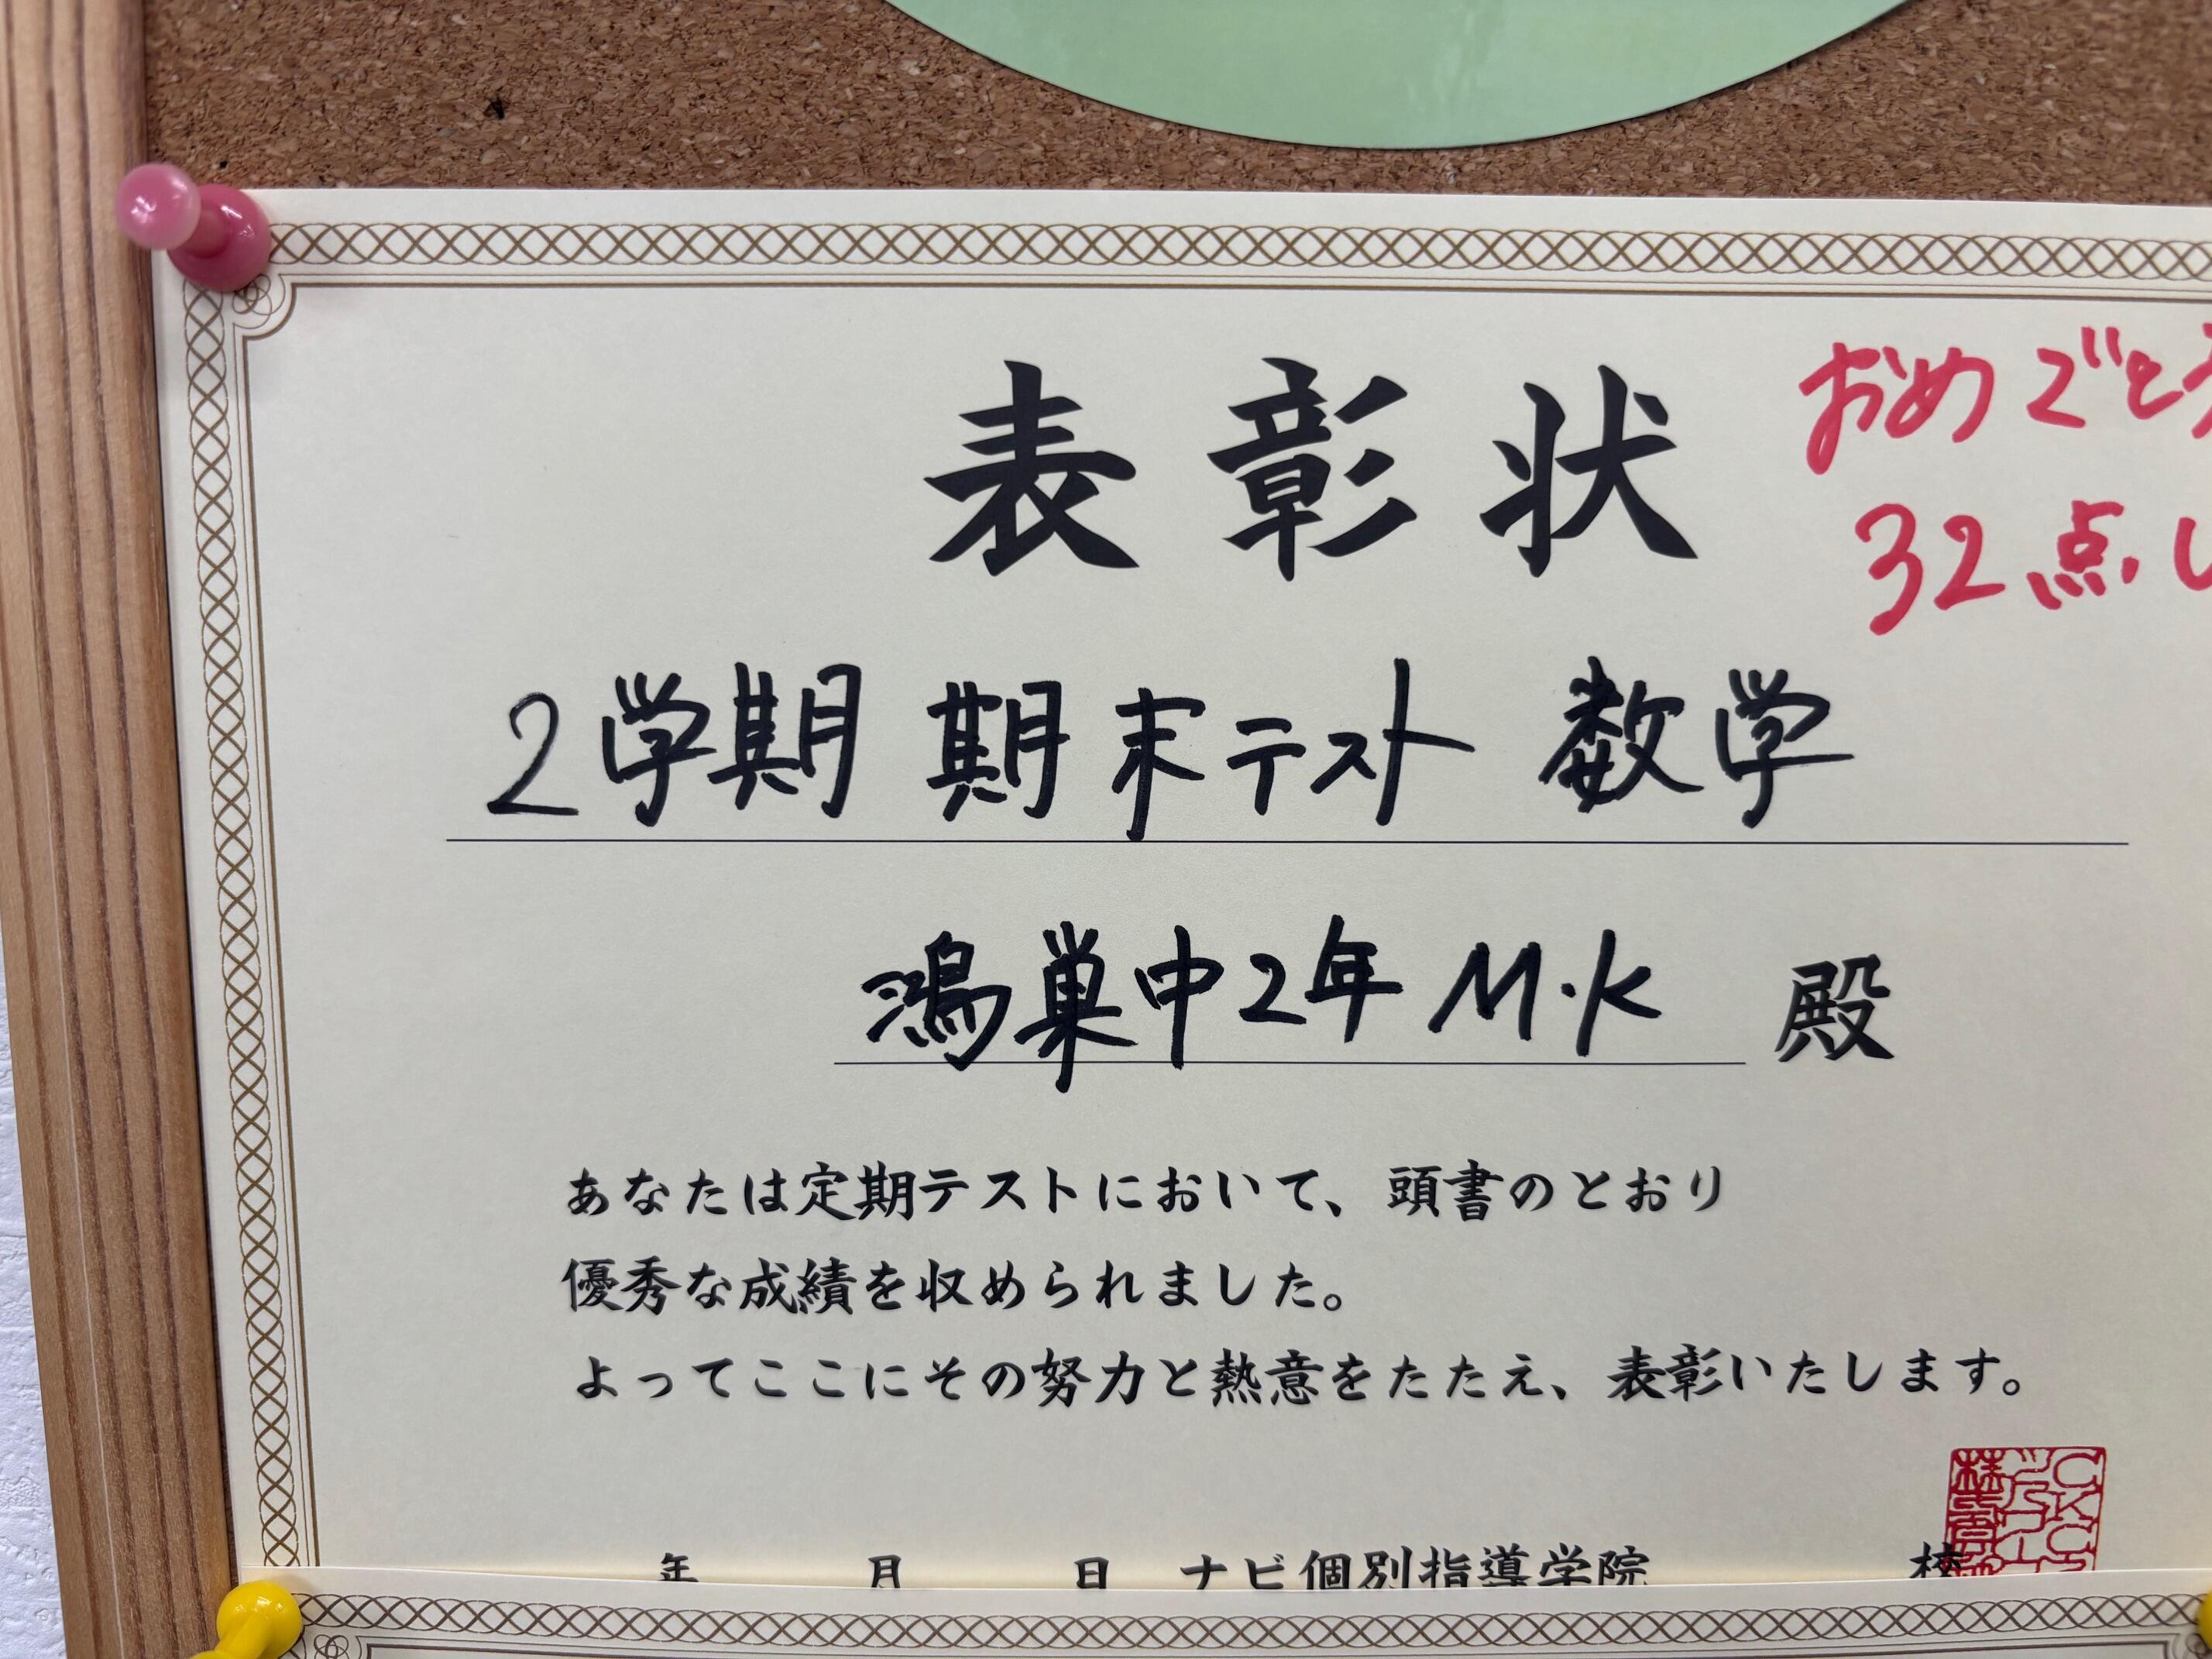 表彰状
おめでとう
32点
2学期 期末テスト 数学
鴻巣中2年 M・K 殿
あなたは定期テストにおいて、頭書のとおり
優秀な成績を収められました。
よってここにその努力と熱意をたたえ、表彰いたします。
年 月 日 ナビ個別指導学院 校